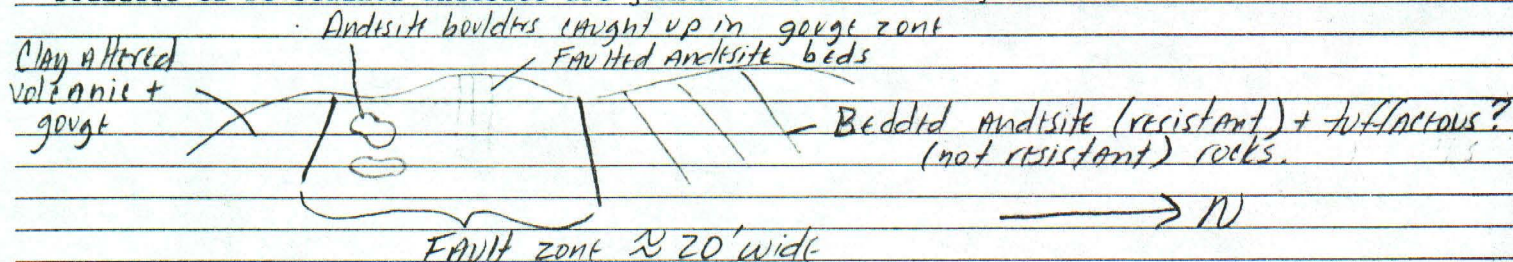 Andesite boulders caught up in gouge zone
Faulted Andesite beds
Clay Altered
volcanic +
gouge
Bedded Andesite (resistant) + tuffaceous?
(not resistant) rocks.
N
Fault zone ≈ 20' wide